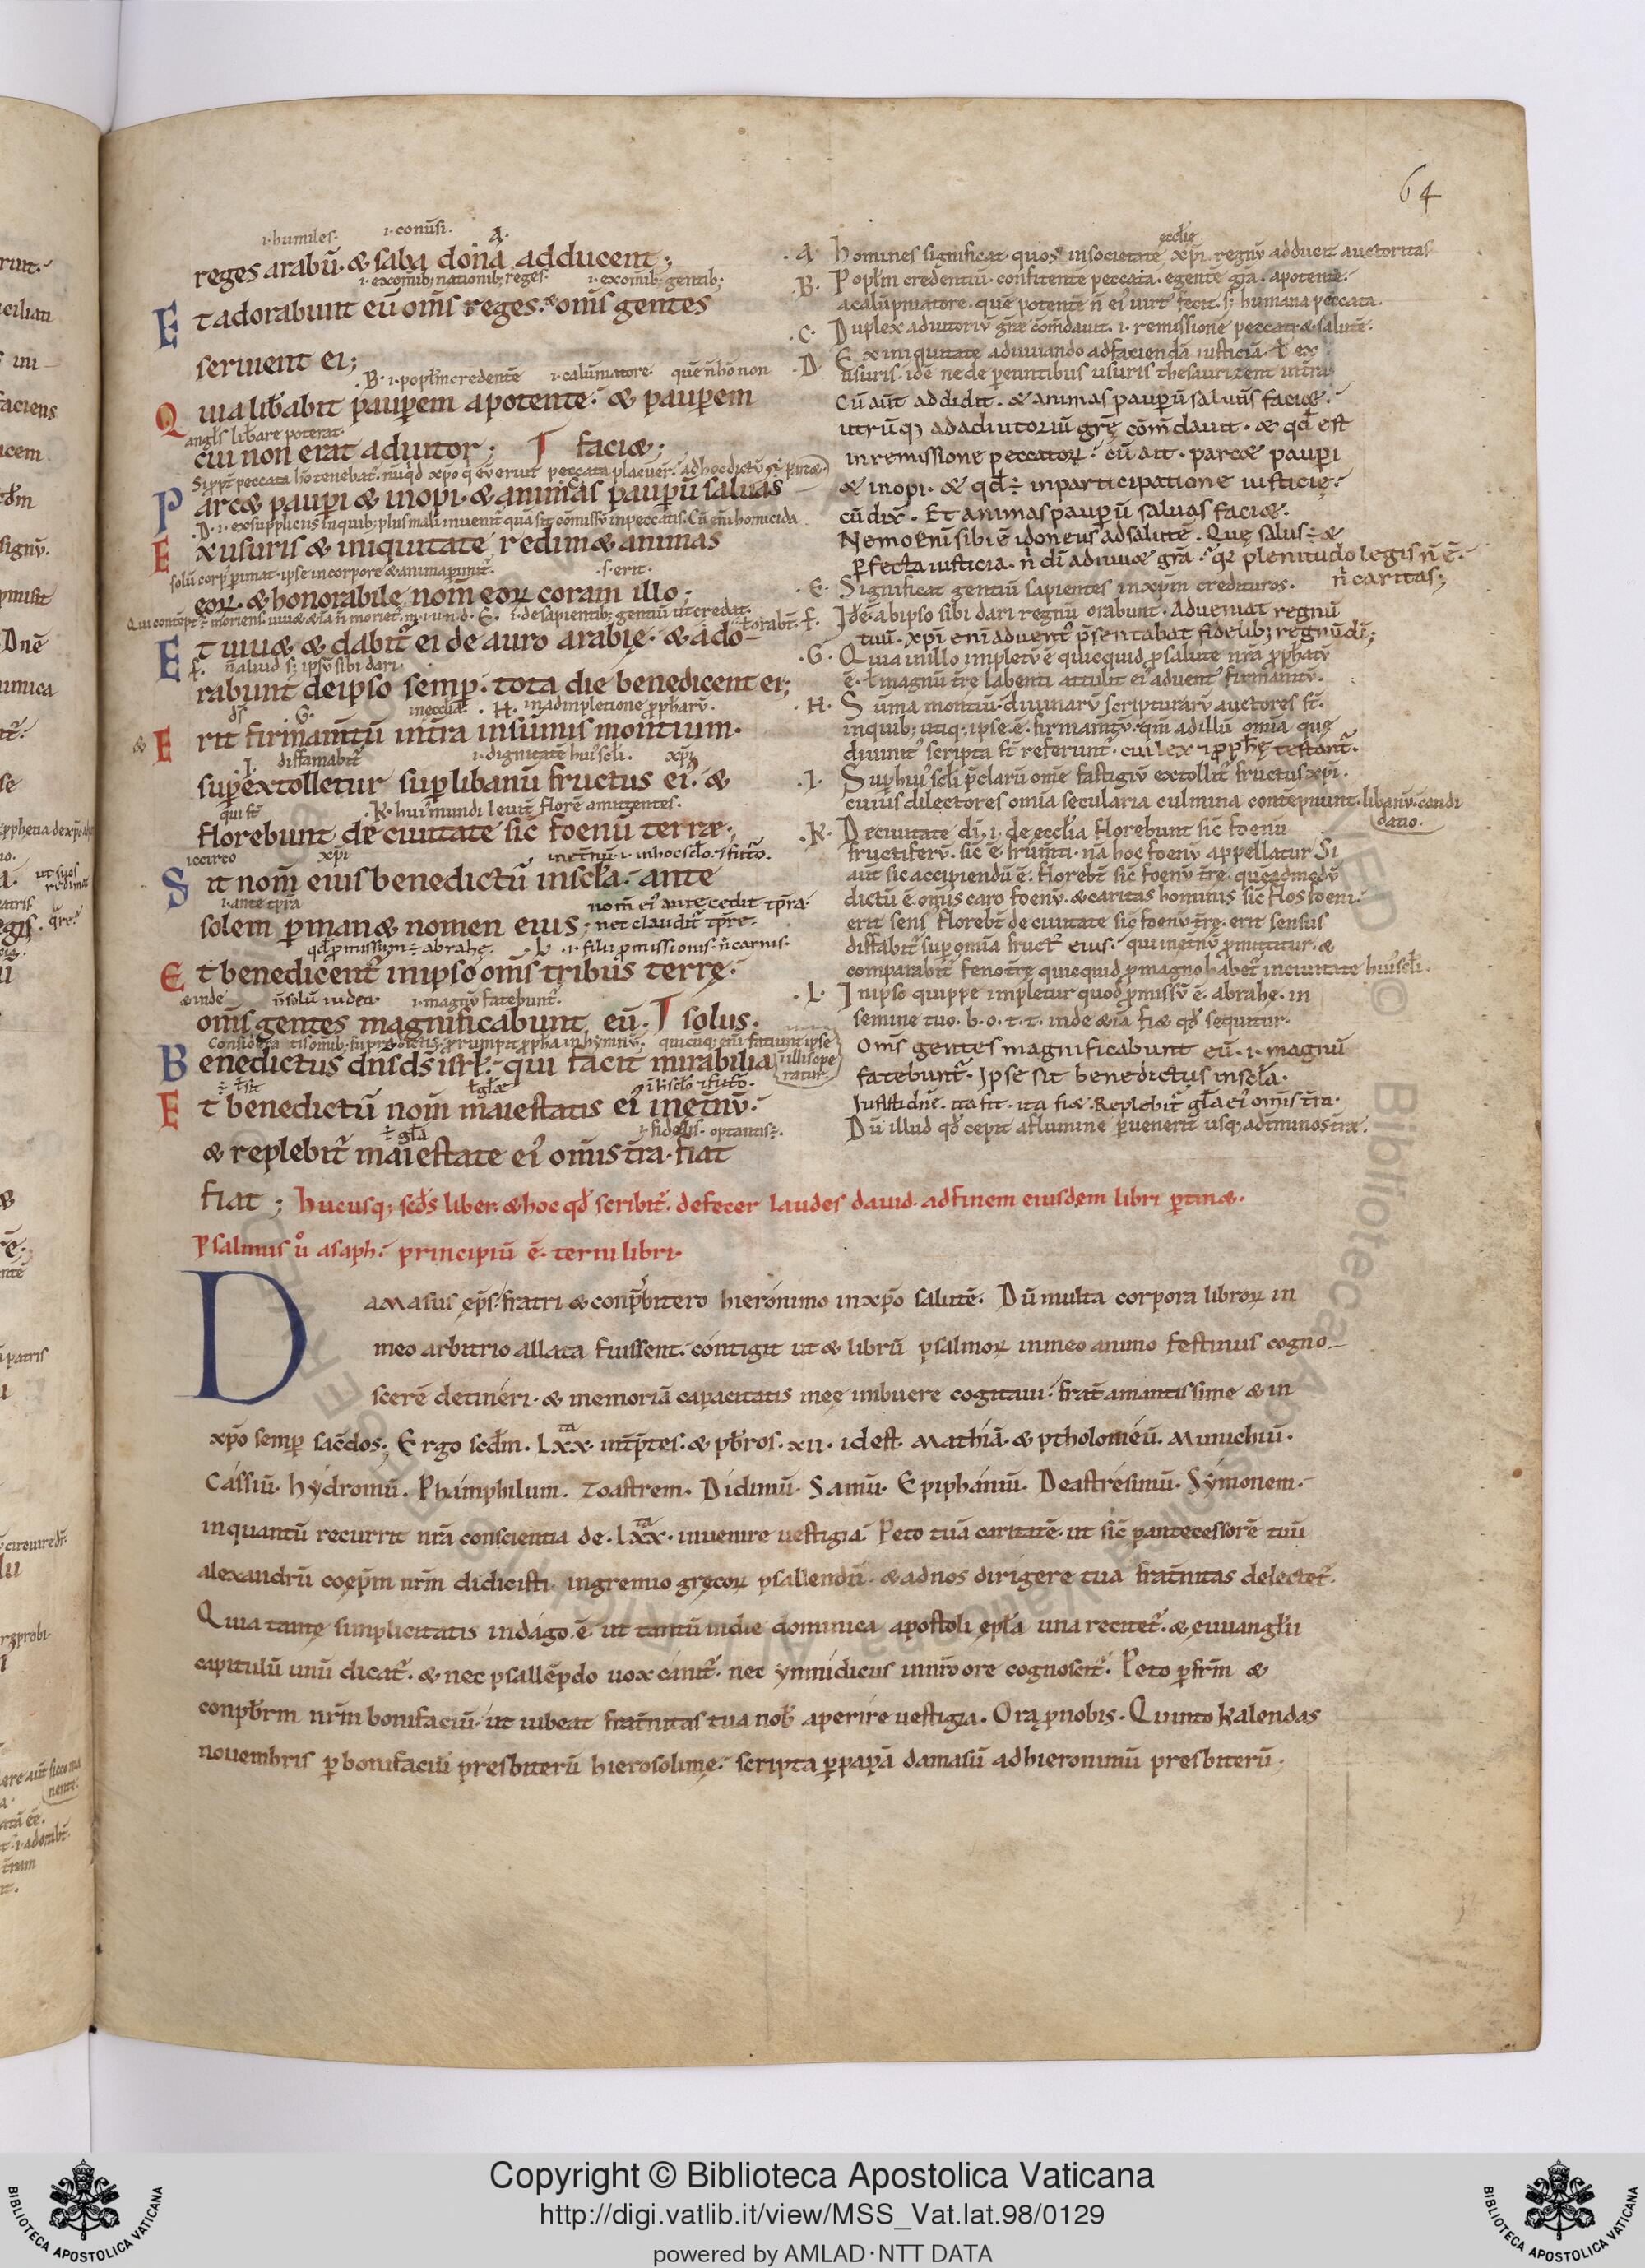 64
.i. humiles. .i. confusi. A.
reges arabū. & saba dona adducent;
.i. ex omīb; nationib; reges. .i. ex omīb; gentib;
Et adorabunt eū om̄s reges. & om̄s gentes
seruient ei;
B. .i. popl̄m credentē .i. calūniatore. quē n̄ hō non
Quia lib̄abit pauꝑem a potente. & pauꝑem
angl̄s lib̄are poterat.
cui non erat adiutor; faciæ;
Parcæ pauꝑi & inopi. & animas pauꝑū saluas
.D. .i. ex suppliciis in quib; plus mali inuenit̄ quā sit cōmissū in peccatis. Cū eni homicida
Ex usuris & iniquitate redimæ animas
solū corp̕ ꝑimat. ipse in corpore & anima punit̄. .s. erit.
eoꝝ. & honorabile nom̄ eoꝝ coram illo;
Et uiuæ & dabit̄ ei de auro arabię. & ado-
f. n̄ aliud s; ipsū sibi dari.
rabunt de ipso semꝑ. tota die benedicent ei;
ds̄ G. in eccl̄ia. .H. in adinpletione ꝓphārū.
& Erit firmam̄tū in t̄ra in sūmis montium.
I. diffamabit̄ .i. dignitatē hui̕ scl̄i. xp̄i
suꝑextolletur suꝑ libanū fructus ei̕. &
qui st̄ .K. hui̕ mundi leuit̄ florē amittentes.
florebunt de ciuitate sic̄ foenū terræ;
iccirco xp̄i in et̄nū .i. in hoc scl̄o. & fut̄o.
Sit nom̄ eius benedictū in scl̄a. ante
.i. ante tp̄ra nom̄ ei̕ antecedit tp̄ra.
solem ꝑmanæ nomen eius; nec claudit̄ tp̄re.
qd̄ ꝓmissum ÷ abrahę. .L. .i. filii ꝓmissionis. n̄ carnis.
Et benedicent̄ in ipso om̄s tribus terrę.
& inde n̄ solū iudei. .i. magnū fatebunt̄.
om̄s gentes magnificabunt eū. solus.
Benedictus dn̄s ds̄ isrl̄. qui facit mirabilia
Et benedictū nom̄ maiestatis ei̕ in et̄nū.
ł gl̄a .i. fidelis. optantis ÷.
& replebit̄ maiestate ei̕ om̄is t̄ra. fiat
fiat; Hucusq; scd̄s liber. & hoc qd̄ scribit̄. defecer laudes dauid. ad finem eiusdem libri ꝑtinæ.
Psalmus ů asaph. principiū ē. tertii libri.
.A. Homines significat. quos in societatē xp̄i regnū adducit auctoritas
ecclīe
.B. Popl̄m credentiū. confitentē peccata. egentē gr̄a. a potente.
a calūpniatore. quē potentē n̄ ei̕ uirt̕ fecit. s; humana peccata.
.C. Duplex adiutoriū grę cōmdauit. .i. remissionē peccati & salutē.
.D. Ex iniquitate adiuuando ad faciendā iusticiā. ł ex
usuris. idē ne de ꝑeuntibus usuris thesaurizent in t̄ra
Cū aūt addidit. & animas pauꝑū saluas faciæ.
utrūq; ad adiutoriū grę cōmdauit. & qd̄ est
in remissione peccatoꝝ. cū ait. parcæ pauꝑi
& inopi. & qd̄ ÷ in participatione iusticię.
cū dix̄. Et animas pauꝑū saluas faciæ.
Nemo enī sibi ē idoneus ad salutē. Quę salus ÷ &
ꝑfecta iusticia. n̄ di̅ adiuuæ gr̄a. q̄ plenitudo legis n̄ ē.
n̄ caritas;
.E. Significat gentiū sapientes in xp̄m credituros.
.F. Id ē. ab ipso sibi dari regnū orabunt. Adueniat regnū
tuū. xp̄i eni aduent̕ p̄sentabat fidelib; regnū di̅;
.G. Quia in illo impletū ē quicquid ꝓ salute nr̄a ꝓphātū
ē. ł magnū t̄re labenti attulit ei̕ aduent̕ firmam̄tū.
.H. Sūma montiū. diuinarū scripturarū auctores st̄.
in quib; utiq; ipse ē. firmam̄tū. qm̄ ad illū omīa quę
diuinit̕ scripta st̄ referunt̄. cui lex & ꝓphę testant̄.
.I. Suꝑ hui̕ scl̄i p̄clarū ome fastigiū extollit̄ fructus xp̄i.
cuius dilectores omīa secularia culmina contēpnunt. libanū. candi
datio.
.K. De ciuitate di̅. .i. de eccl̄ia florebunt sic̄ foenū
fructiferū. sic̄ ē frum̄ti. nā hoc foenū appellatur Si
aūt sic accipiendū ē. florebt̄ sic̄ foenū t̄re. queadmodū
dictū ē. omis caro foenū. & caritas hominis sic̄ flos foeni.
erit sens̕ florebt̄ de ciuitate sic̄ foenū t̄rę. erit sensus
diffabit̄ suꝑ omīa fruct̕ eius. qui in et̄nū ꝓmittitur. &
comparabit̄ feno t̄rę quicquid ꝓ magno habet̄ in ciuitate hui̕ scl̄i.
.L. In ipso quippe impletur quod ꝓmissū ē. abrahę. in
semine tuo. b. o. t. t. inde & iā fiæ qd̄ sequitur.
Om̄s gentes magnificabunt eū. .i. magnū
fatebunt̄. Ipse sit benedictus in scl̄a.
Iussisti dn̄e. ita fit. ita fiæ. Replebit̄ gl̄a ei̕ omīs t̄ra.
Dū illud qd̄ cepit a flumine ꝑuenerit usq; ad t̄minos t̄ræ.
Damasus ep̄s. fratri & conp̄bitero hierónimo in xp̄o salutē. Dū multa corpora libroꝝ in
meo arbitrio allata fuissent. cóntigit ut & librū psalmoꝝ in meo animo festinus cogno-
scerē detinéri. & memoriā capacitatis meę imbuere cogitaui. frat̄ amantissime & in
xp̄o semꝑ sac̄dos; Ergo scd̄m. Lxx.ta int̄p̄tes. & pb̄ros. xii. id est. Mathiā. & ptholoméū. Munichiū.
Cássiū. hýdromū. Phámphilum. Zoastrem. Dídimū. Samū. Epiphániū. Deastrésimū. Sýmonem.
inquantū recurrit nr̄a conscientia de. Lxx.ta inuenire uestigia. Peto tuā caritatē. ut sic̄ p antecessorē tuū
alexandrū coep̄m nr̄m didicisti. in gremio gręcoꝝ psallendū. & ad nos dirígere tua frat̄nitas delectet̄.
Quia tantę simplicitatis indágo ē. ut tantū in die dominica apostoli epl̄a una recitet̄. & euuangl̄ii
capitulū unū dicat̄. & nec psallēpdo uox cánit̄. nec ymnidicus in nr̄o ore cognoscit̄. Peto ꝑ fr̄m &
conpb̄rm nr̄m bonifaciū. ut iubeat frat̄nitas tua nob̄ aperíre uestigia. Ora ꝓ nobis. Quinto kalendas
nouembris ꝑ bonifaciū presbiterū hierosolimę. scripta ꝑ papā damasū ad hieronimū presbiterū.
Copyright © Biblioteca Apostolica Vaticana
http://digi.vatlib.it/view/MSS_Vat.lat.98/0129
powered by AMLAD·NTT DATA
BIBLIOTECA APOSTOLICA VATICANA
BIBLIOTECA APOSTOLICA VATICANA